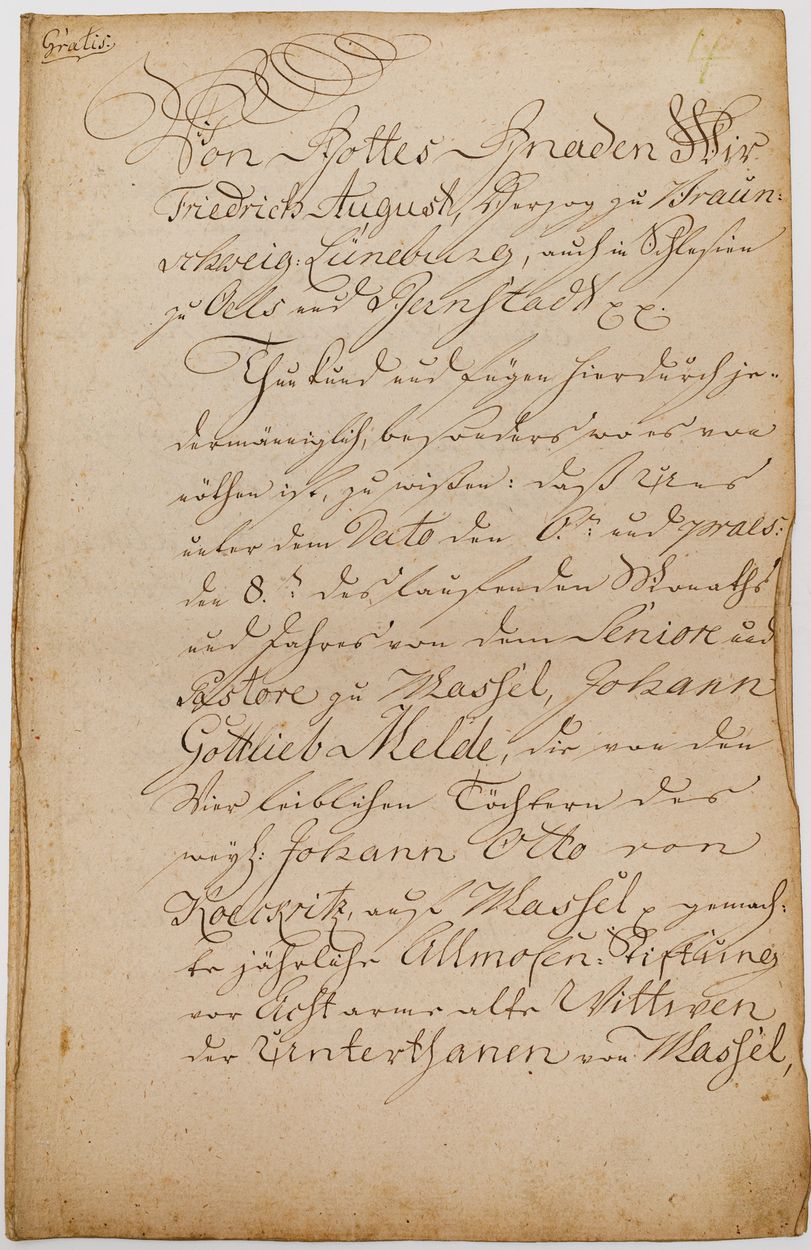 Gratis.
Von Gottes Gnaden Wir
Friedrich August, Herzog zu Braun:
schweig: Lüneburg, auch in Schlesien
zu Oels und Bernstadt pp.
Thun kund und fügen hierdurch je-
dermänniglich, besonders wo es von
nöthen ist, zu wißen: daß Uns
unter dem Dato den 6.n: und praes:
den 8.n: des laufenden Monaths
und Jahres von dem Seniore und
Pastore zu Massel, Johann
Gottlieb Melde, die von den
Vier leiblichen Töchtern des
weyl: Johann Otto von
Koeckritz, auf Massel p gemach:
te jährliche Allmosen: Stiftung
vor Acht arme alte Wittwen
der Unterthanen von Massel,